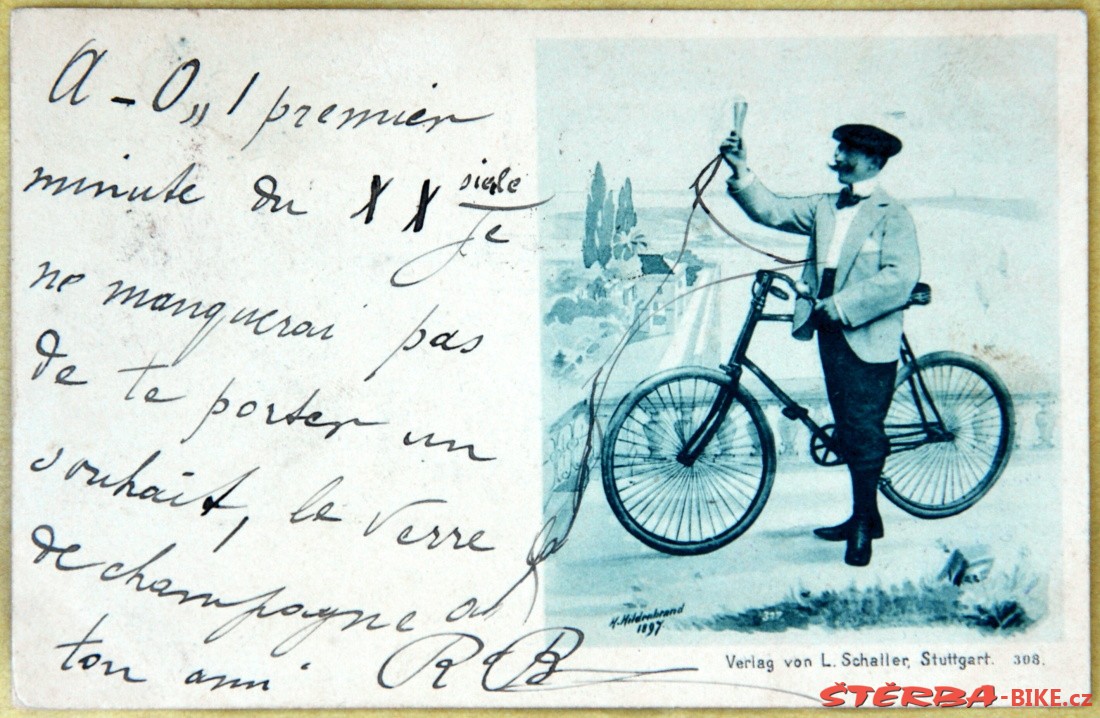 A - 0,, 1 premier
minute du XX siecle
Je
ne manquerai pas
de te porter un
souhait, le verre
de champagne a
ton ami RB
H. Hildenbrand
1897
Verlag von L. Schaller, Stuttgart. 308.
ŠTĚRBA-BIKE.cz